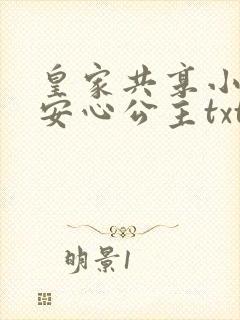 皇家共享小
安心公主txt
明景1